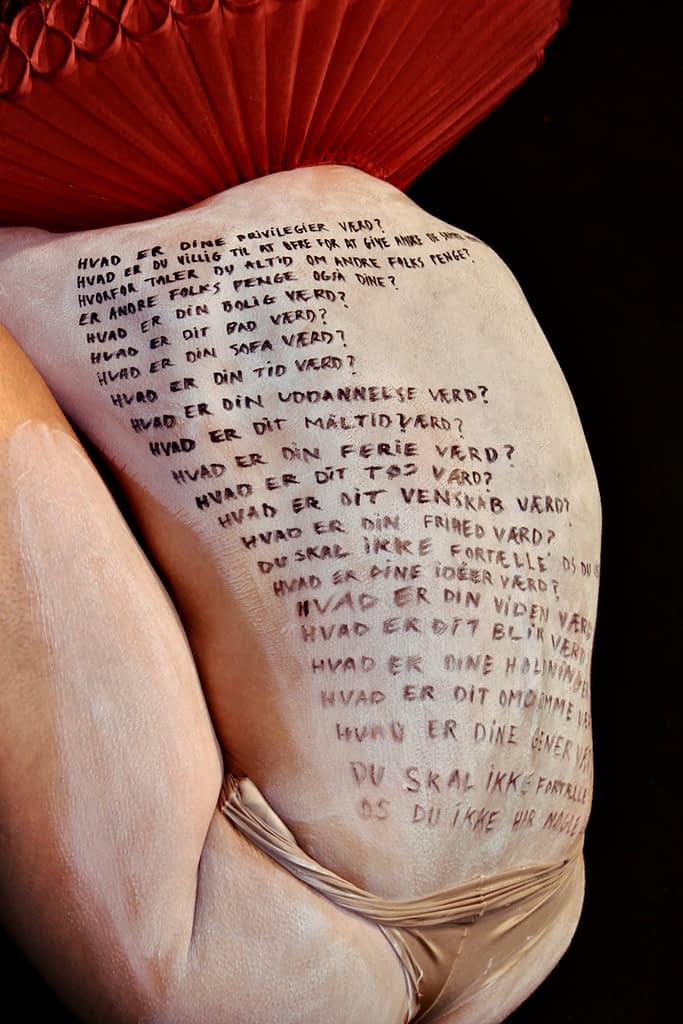 HVAD ER DINE PRIVILEGIER VÆRD?
HVAD ER DU VILLIG TIL AT OFRE FOR AT GIVE ANDRE DE SAMME
HVORFOR TALER DU ALTID OM ANDRE FOLKS PENGE?
ER ANDRE FOLKS PENGE OGSÅ DINE?
HVAD ER DIN BOLIG VÆRD?
HVAD ER DIT BAD VÆRD?
HVAD ER DIN SOFA VÆRD?
HVAD ER DIN TID VÆRD?
HVAD ER DIN UDDANNELSE VÆRD?
HVAD ER DIT MÅLTID VÆRD?
HVAD ER DIN FERIE VÆRD?
HVAD ER DIT TØJ VÆRD?
HVAD ER DIT VENSKAB VÆRD?
HVAD ER DIN FRIHED VÆRD?
DU SKAL IKKE FORTÆLLE OS DU
HVAD ER DINE IDÉER VÆRD?
HVAD ER DIN VIDEN VÆRD
HVAD ER DIT BLIK VÆRD
HVAD ER DINE HOLDNINGER
HVAD ER DIT OMDØMME
HVAD ER DINE GENER
DU SKAL IKKE FORTÆLLE
OS DU IKKE HAR NOGLE